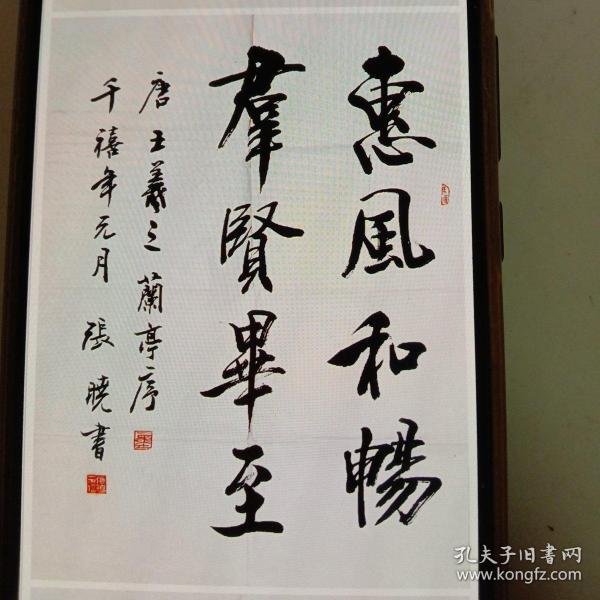 惠風和暢
羣賢畢至
唐王羲之蘭亭序
千禧年元月張曉書
孔夫子旧書网
www.kongfz.com